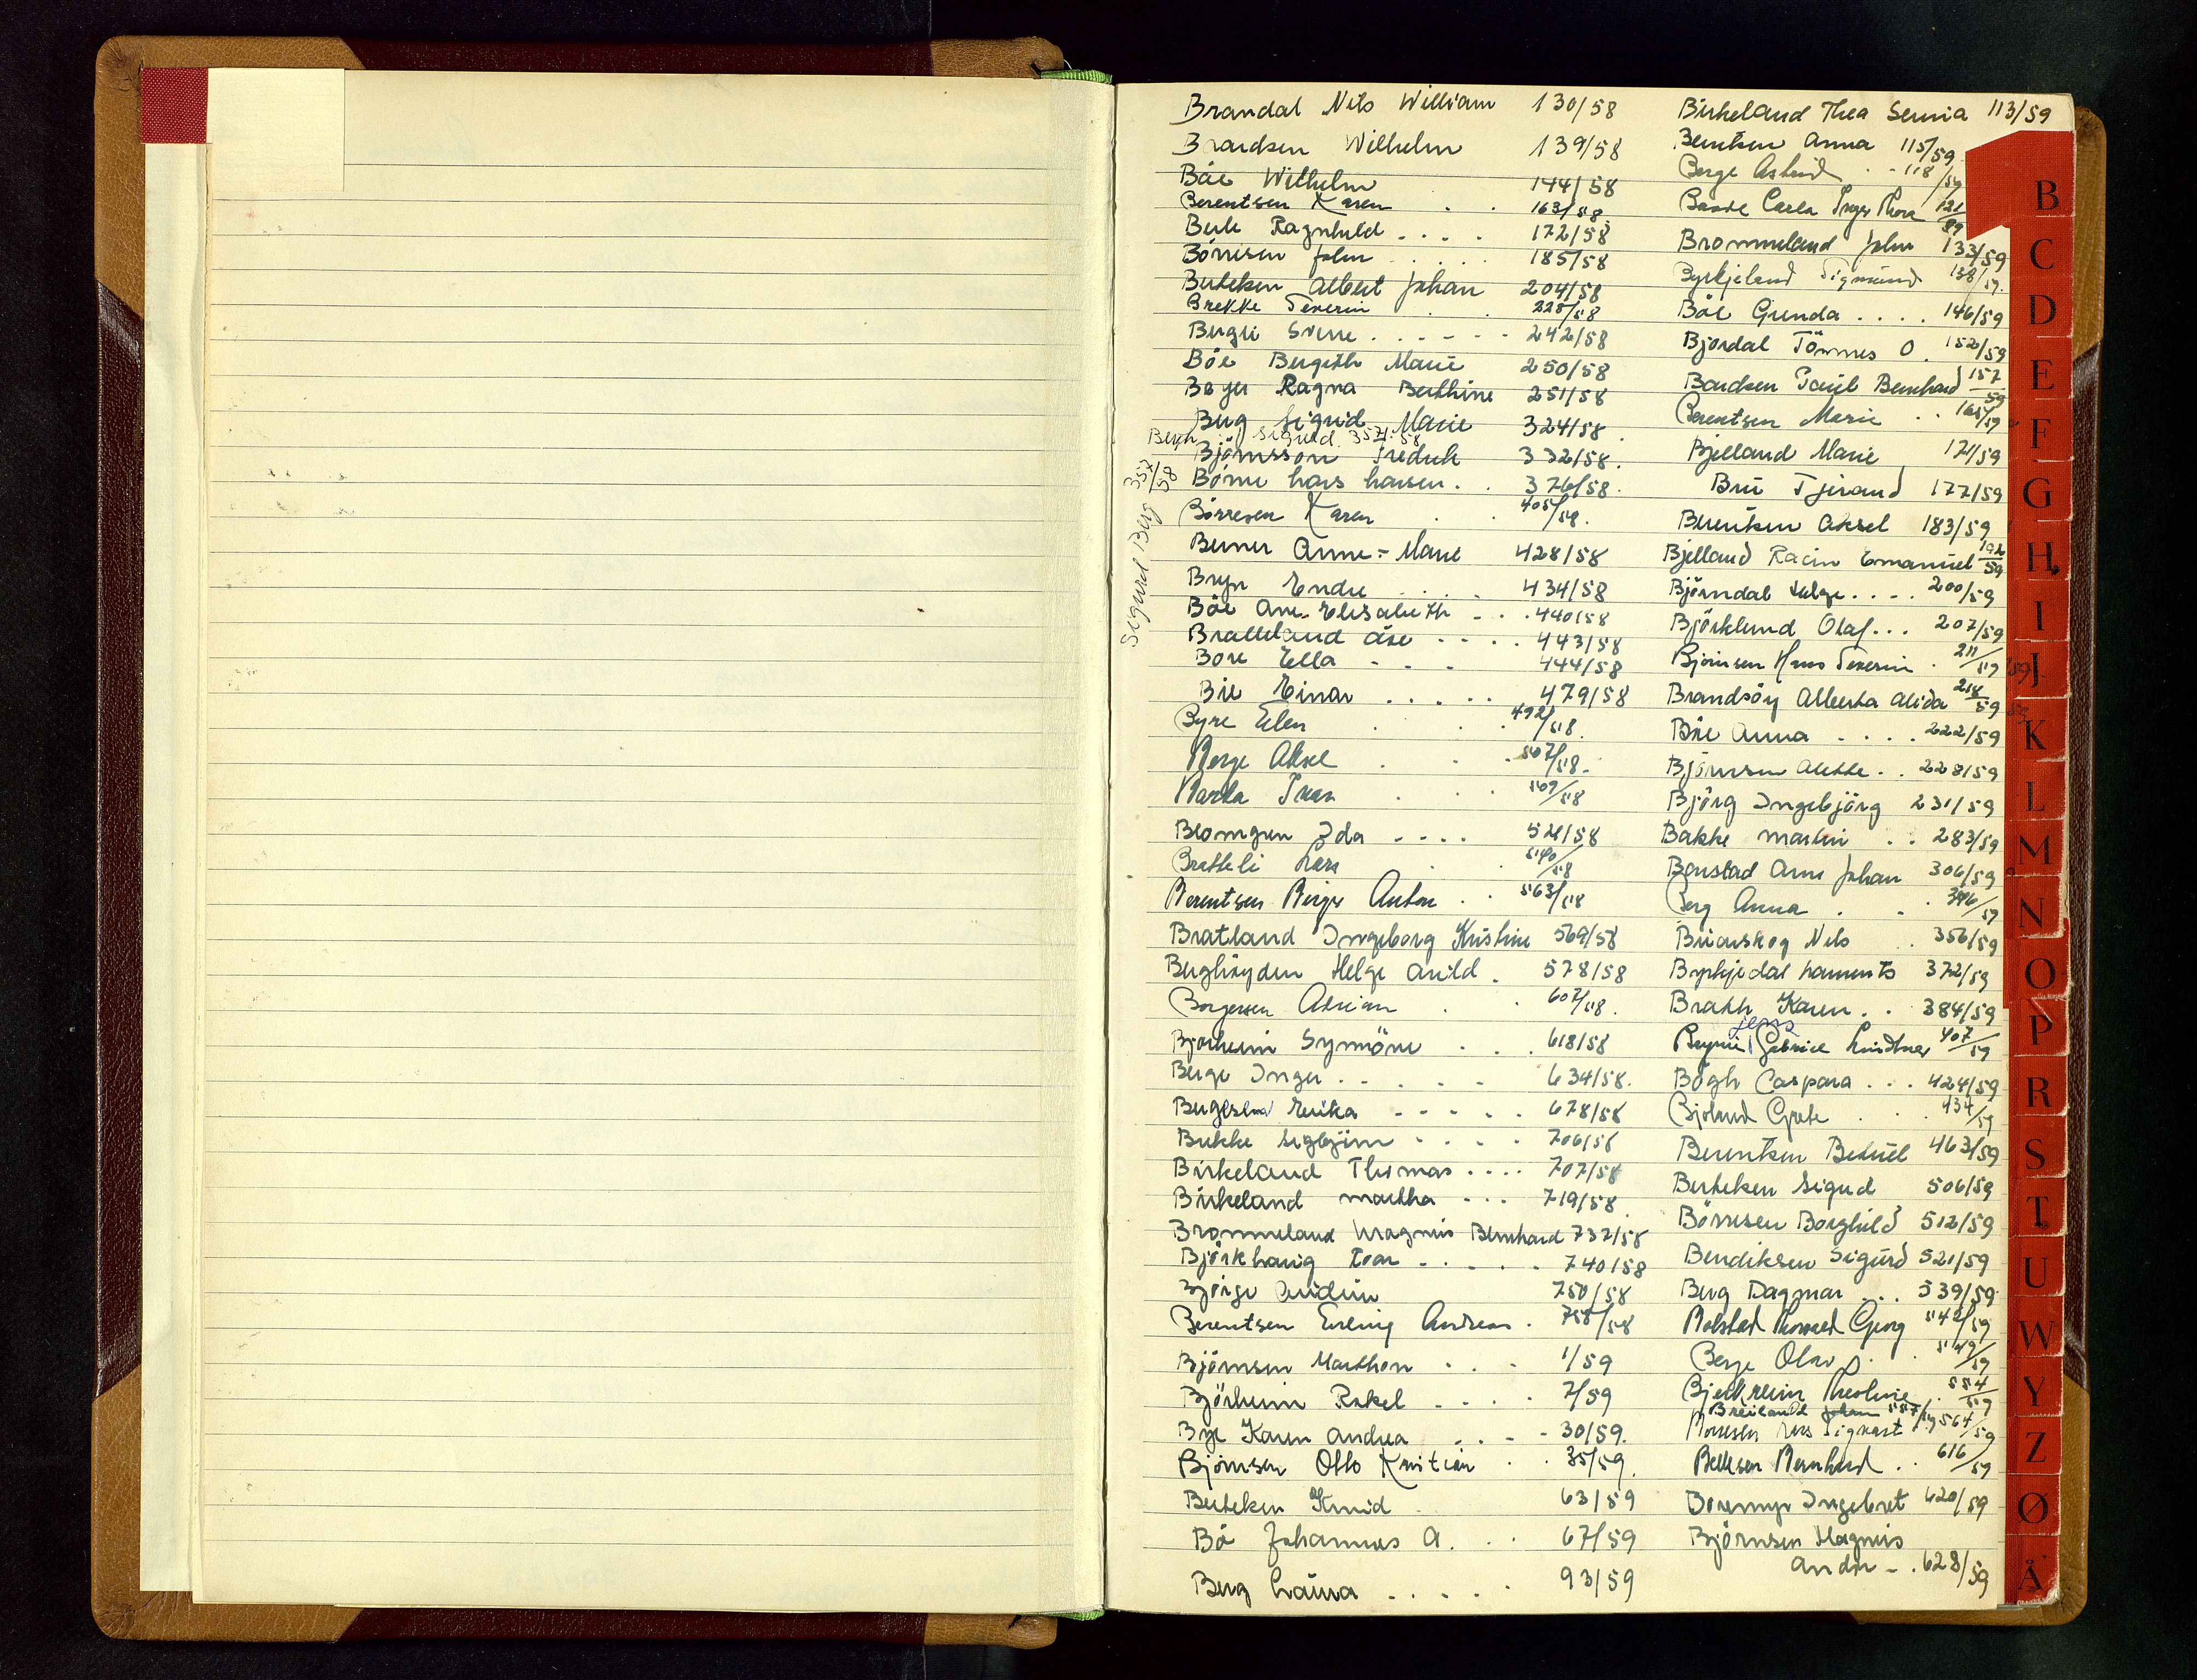 Brandal Nils William 130/58
Brandsen Wilhelm 139/58
Bøe Wilhelm 144/58
Berentsen Karen . . 163/58.
Berle Ragnhild . . . . 172/58
Börresen John . . . . . 185/58
Bertelsen Albert Johan 204/58
Brekke Severin . . 225/58
Berge Sverre . . . . - - 242/58
Böe Bergith Marie 250/58
Bøyer Ragna Berthine 251/58
Berg Sigrid Marie 324/58.
Bergh Sigurd. 357/58
Björnsson Fredrik 332/58.
Börne Lars Larsen . . 376/58.
Sigurd Berg 357/58
Börresen Karen . . 405/58.
Berner Anne-Marie 428/58
Bryn Endre . . . . 434/58
Böe Ane Elisabeth - . . 440/58
Bratteland Åse - - - . . 443/58
Bore Ella - - - 444/58
Bie Einar . . . . . 479/58
Byre Elen . . . 492/58.
Berge Aksel . . . 507/58.
Barka Ivar . . . 509/58
Blomgren Ida - - . . 521/58
Bratteli Lars . . 540/58
Berentsen Birger Anton . . 563/58
Bratland Ingeborg Kristine 569/58
Berghøyden Helge Arild . 578/58
Borgersen Adrian . . 607/58.
Bjørheim Synnöve . . . 618/58
Berge Inger . . . . . . 634/58.
Bergesen Erika - - - - - 678/58
Brekke Sigbjörn - - - . 706/58
Birkeland Thomas . . . . 707/58
Birkeland Martha - - - 719/58.
Brommeland Magnus Bernhard 737/58
Björkhaug Ivar - . . . . . 740/58
Björge Gudrun 750/58
Berentsen Erling Andreas . 755/58
Björnsen Marthon . . . 1/59
Björheim Rakel - . . . 7/59
Bye Karen Andrea . . - - 30/59.
Björnsen Otto Kristian . . 35/59.
Bertelsen Knud . 63/59
Bö Johannes A. . . 67/59
Berg Laura . . . . . 93/59
Birkeland Thea Serina 113/59
Berntsen Anna 115/59
Berge Astrid . . 118/59
Basse Carla Inger Thora 121/59
Brommeland John 133/59
Byrkjeland Sigmund 138/59.
Böe Gunda . . . . 146/59
Bjordal Tönnes O . 152/59
Bardsen Paul Bernhard 157/59
Berentsen Marie . . 165/59
Bjelland Marie 171/59
Bru Tjerand 177/59
Berentsen Aksel 183/59
Bjelland Racin Emanuel 192/59
Björndal Helge . . . . 200/59
Björklund Olaf . . . 207/59
Björnsen Hans Severin . 211/59
Brandsöy Alberta Alida 218/59
Böe Anna . . . . 222/59
Björnsen Alette . . 228/59
Björg Ingebjörg 231/59
Bakke Martin . . 283/59
Bonstad Arne Johan 306/59
Berg Anna . . . 346/59
Bruarskog Nils . 356/59
Byrkjedal 372/59
Brakk Karen . . 384/59
Jens
Brynie Gabriel Lindtner 407/59
Bögh Caspara . . . 424/59
Bjelland Grete . . . 434/59
Berentsen Betuel 463/59
Bertelsen Sigurd 506/59
Börresen Borghild 512/59
Bendiksen Sigurd 521/59
Berg Dagmar . . . 539/59
Bolstad Thorvald Georg 542/59
Berge Olav . . . 549/59
Bjerkreim Theoline . 554/59
Breiland Johan 557/59
Börresen Lars Sigvart 564/59
Bertelsen Bernhard . . 616/59
Boremyr Ingebret 620/59
Björnsen Magnus
Andr - . 628/59
B
C
D
E
F
G
H
I
J
K
L
M
N
O
P
R
S
T
U
W
Y
Z
Ø
Å